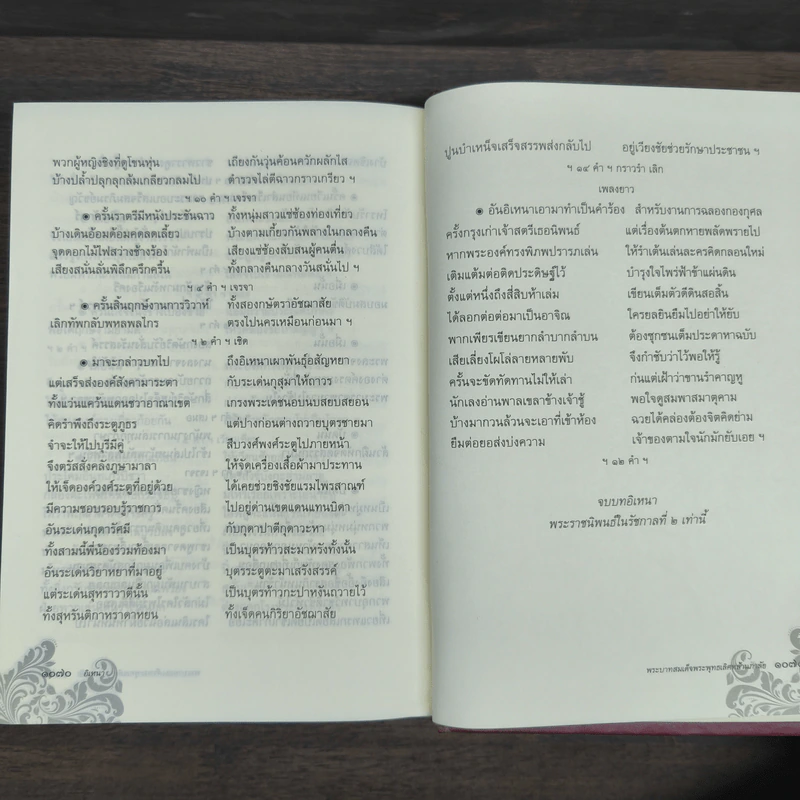 พวกผู้หญิงชิงที่ดูโขนหุ่น เถียงกันวุ่นค้อนควักผลักไส
บ้างปล้ำปลุกลุกล้มเกลียวกลมไป ตำรวจไล่ตีฉาวกราวเกรียว ฯ
ฯ ๑๐ คำ ฯ เจรจา
๏ ครั้นราตรีมีหนังประชันฉาว ทั้งหนุ่มสาวแซ่ซ้องท่องเที่ยว
บ้างเดินอ้อมด้อมคดลดเลี้ยว บ้างตามเกี้ยวกันพลางในกลางคืน
จุดดอกไม้ไฟสว่างช้างร้อง เสียงแซ่ซ้องลับสนผู้คนตื่น
เสียงสนั่นลั่นพิลึกครึกครื้น ทั้งกลางคืนกลางวันสนั่นไป ฯ
ฯ ๔ คำ ฯ เจรจา
๏ ครั้นสิ้นฤกษ์งานการวิวาห์ ทั้งสองกษัตราอัชฌาสัย
เลิกทัพกลับพหลพลไกร ตรงไปนครเหมือนก่อนมา ฯ
ฯ ๒ คำ ฯ เชิด
๏ มาจะกล่าวบทไป ถึงอิเหนาเผาพันธุ์อสัญหยา
แต่เสร็จส่งองค์สังคามาระตา กับระเด่นกุสุมาให้ถาวร
ทั้งแว่นแคว้นแดนชวาอาณาเขต เกรงพระเดชนอบนบสยบสยอน
คิดรำพึงถึงระตูภูธร แต่ปางก่อนต่างถวายบุตรชายมา
จำจะให้ไปบูรีมีคู่ สืบวงศ์พงศ์ระตูไปภายหน้า
จึงตรัสสั่งคลังภูษามาลา ให้จัดเครื่องเสื้อผ้ามาประทาน
ให้เจ็ดองค์วงศ์ระตูที่อยู่ด้วย ได้เคยช่วยชิงชัยแรมไพรสาณฑ์
มีความชอบรอบรู้ราชการ ไปอยู่ด่านเขตแดนแทนบิดา
อันระเด่นกุดารัศมี กับกุดาปาตีกุดาวะหา
ทั้งสามนี้พี่น้องร่วมท้องมา เป็นบุตรท้าวสะมาหรังทั้งนั้น
อันระเด่นวิยาหยาที่มาอยู่ บุตรระตูตะมาเสรังสรรค์
แต่ระเด่นสุหราวาตีนั้น เป็นบุตรท้าวกะปาหังถวายไว้
ทั้งสุหรันดิกาหราดาหยน ทั้งเจ็ดคนกิริยาอัชฌาสัย
๑๐๗๐ อิเหนา
ปูนบำเหน็จเสร็จสรรพส่งกลับไป อยู่เวียงชัยช่วยรักษาประชาชน ฯ
ฯ ๑๔ คำ ฯ กราวรำ เลิก
เพลงยาว
๏ อันอิเหนาเอามาทำเป็นคำร้อง สำหรับงานการฉลองกองกุศล
ครั้งกรุงเก่าเจ้าสตรีเธอนิพนธ์ แต่เรื่องต้นตกหายพลัดพรายไป
หากพระองค์ทรงพิภพปรารภเล่น ให้รำเต้นเล่นละครคิดกลอนใหม่
เติมแต้มต่อติดประดิษฐ์ไว้ บำรุงใจไพร่ฟ้าข้าแผ่นดิน
ตั้งแต่หนึ่งถึงสี่สิบห้าเล่ม เขียนเต็มตัวดีดินสอสิ้น
ได้ลอกต่อต่อมาเป็นอาจิณ ใครยลยินยืมไปอย่าให้ยับ
พากเพียรเขียนยากลำบากลำบน ต้องซุกซนเต็มประดาหาฉบับ
เสียเลี่ยงโผโล่ลายหลายพับ จึงกำชับว่าไว้พอให้รู้
ครั้นจะขัดทัดทานไม่ให้เล่า ก่นแต่เฝ้าว่าขานรำคาญหู
นักเลงอ่านพาลเขลาข้างเจ้าชู้ พอใจดูสมพาสมาตุคาม
บ้างมากวนล้วนจะเอาที่เข้าห้อง ฉวยได้คล่องต้องจิตคิดย่าม
ยืมต่อยอส่งบ่งความ เจ้าของตามใจนักมักยับเอย ฯ
ฯ ๑๒ คำ ฯ
จบบทอิเหนา
พระราชนิพนธ์ในรัชกาลที่ ๒ เท่านี้
พระบาทสมเด็จพระพุทธเลิศหล้านภาลัย